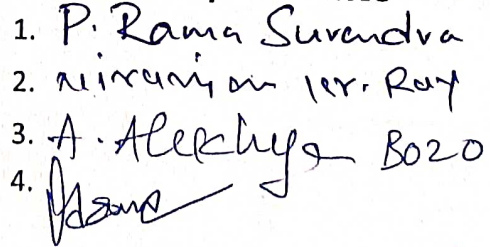 1. P. Rama Surendra
2. Niranjan kr. Ray
3. A. Alekhya B020
4.